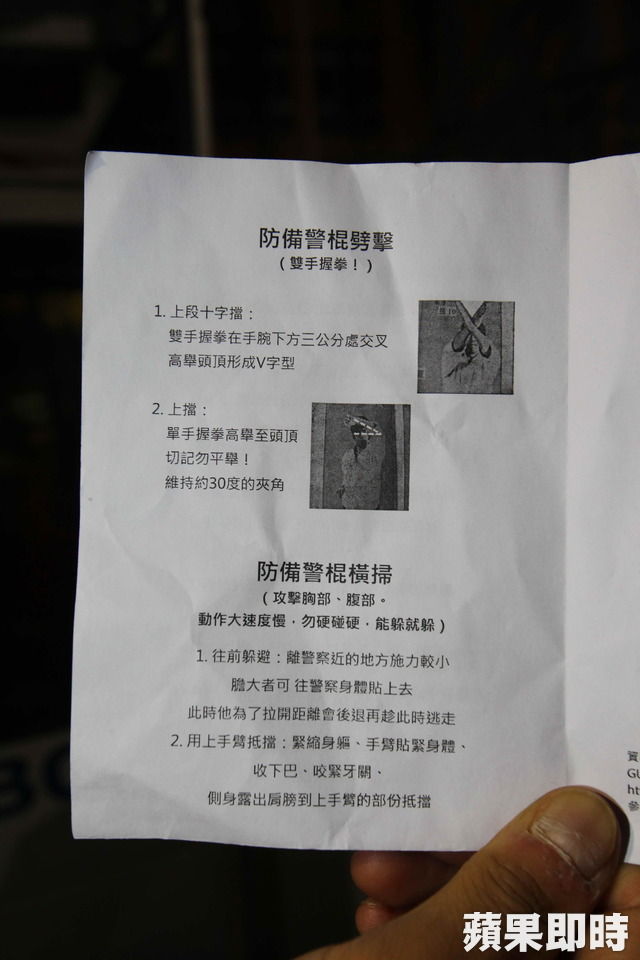 防備警棍劈擊
（雙手握拳！）
1. 上段十字擋：
雙手握拳在手腕下方三公分處交叉
高舉頭頂形成V字型
2. 上擋：
單手握拳高舉至頭頂
切記勿平舉！
維持約30度的夾角
防備警棍橫掃
（攻擊胸部、腹部。
動作大速度慢，勿硬碰硬，能躲就躲）
1. 往前躲避：離警察近的地方施力較小
膽大者可 往警察身體貼上去
此時他為了拉開距離會後退再趁此時逃走
2. 用上手臂抵擋：緊縮身軀、手臂貼緊身體、
收下巴、咬緊牙關、
側身露出肩膀到上手臂的部份抵擋
GU
參
蘋果即時